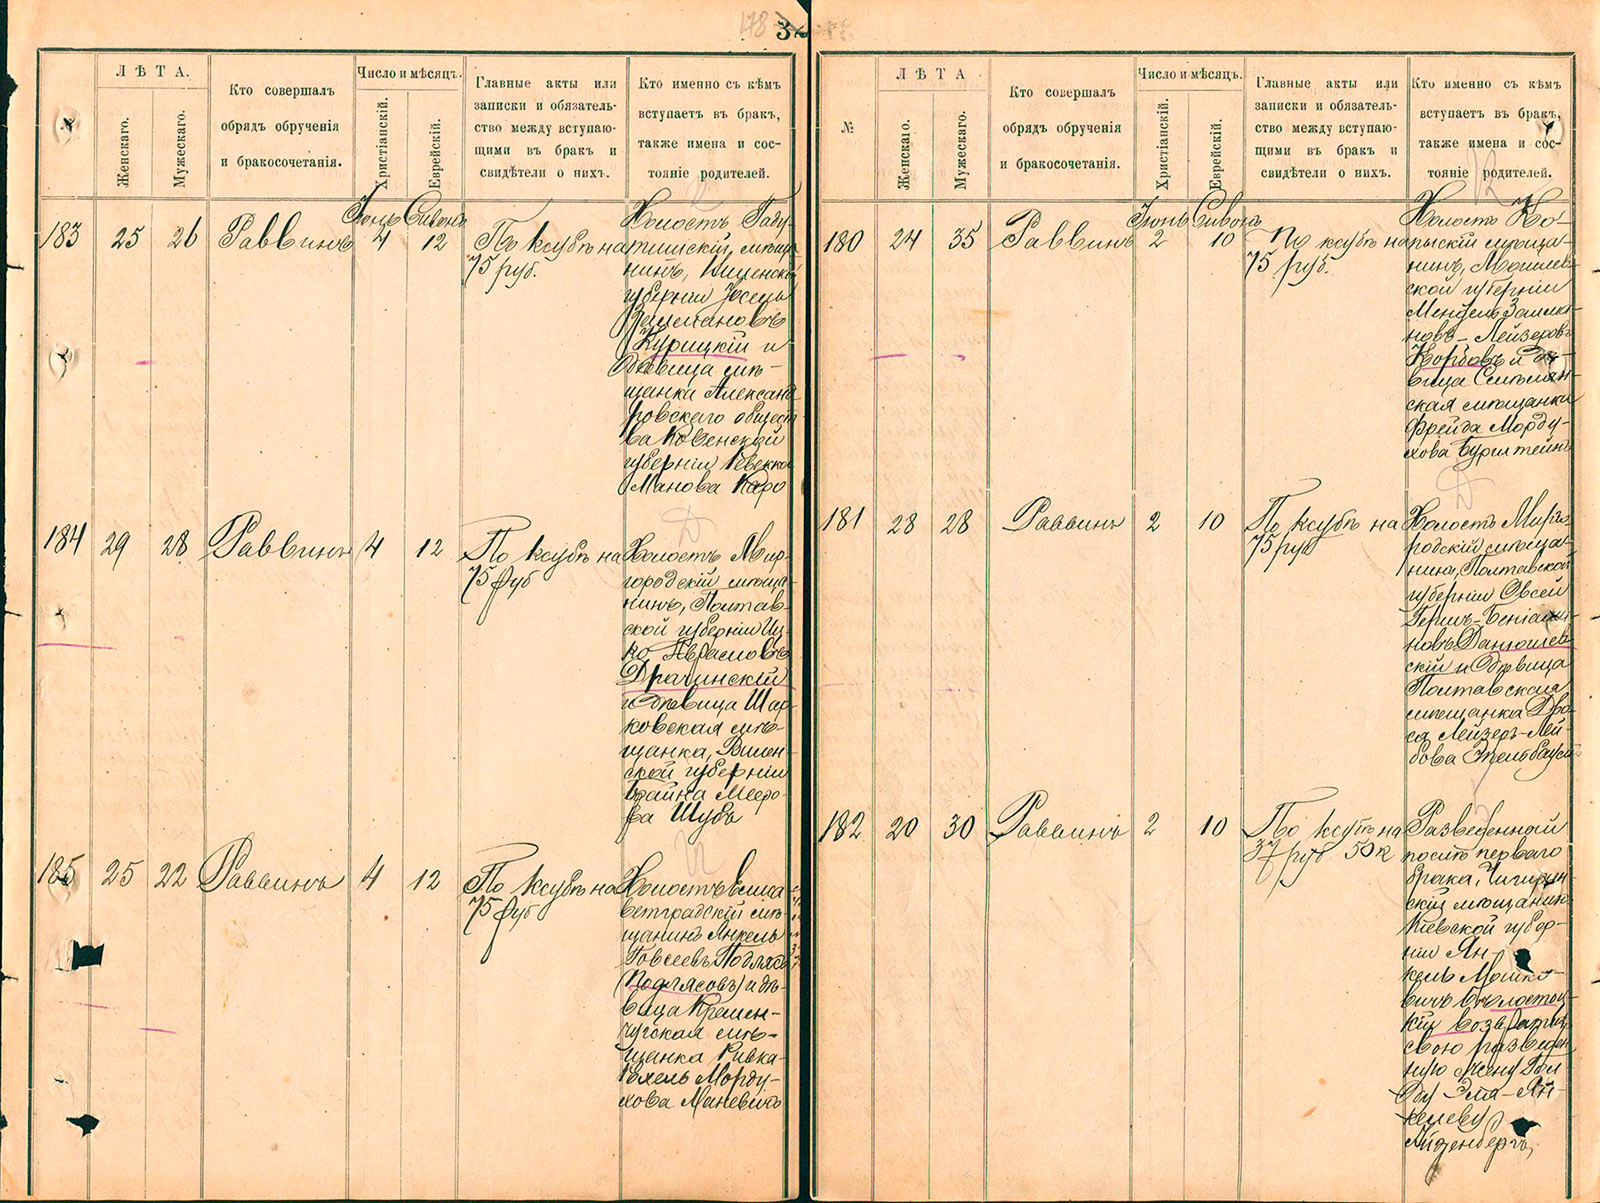 178
3
ЛѢТА.
Женскаго.
Мужескаго.
Кто совершалъ
обрядъ обрученія
и бракосочетанія.
Число и мѣсяцъ.
Христіанскій.
Еврейскій.
Главные акты или
записки и обязатель-
ство между вступаю-
щими въ бракъ и
свидѣтели о нихъ.
Кто именно съ кѣмъ
вступаетъ въ бракъ,
также имена и сос-
тояніе родителей.
Іюнь Сивонъ
183 25 26 Раввинъ 4 12
По ксубѣ на
75 руб.
Холостъ Гаду-
тишскій мѣща-
нинъ, Виленской
губерніи Іосель
Зеимановъ
Курицкій и
дѣвица мѣ-
щанка Александ-
ровскаго общест-
ва Ковенской
губерніи Ревекка
Манова Каро
184 29 28 Раввинъ 4 12
По ксубѣ на
75 руб
Холостъ Мир-
городскій мѣща-
нинъ, Полтав-
ской губерніи Иц-
ко Абрамовъ
Драчинскій
и дѣвица Шар-
ковская мѣ-
щанка, Вилен-
ской губерніи
Брайна Мееро-
ва Шубъ
185 25 22 Раввинъ 4 12
По ксубѣ на
75 руб
Холостъ Елиса-
ветградскій мѣ-
щанинъ Янкель
Говсеевъ Подляс
(Подлясовъ) и дѣ-
вица Кремен-
чугская мѣ-
щанка Ривка-
Рохель Морду-
хова Маневичъ
№
ЛѢТА
Женскаго.
Мужескаго.
Кто совершалъ
обрядъ обрученія
и бракосочетанія.
Число и мѣсяцъ.
Христіанскій.
Еврейскій.
Главные акты или
записки и обязатель-
ство между вступаю-
щими въ бракъ и
свидѣтели о нихъ.
Кто именно съ кѣмъ
вступаетъ въ бракъ,
также имена и сос-
тояніе родителей.
Іюнь Сивонъ
180 24 35 Раввинъ 2 10
По ксубѣ на
75 руб.
Холостъ Ко-
рысскій мѣща-
нинъ, Могилев-
ской губерніи
Мендель Залма-
новъ-Лейзеровъ
Корбовъ и дѣ-
вица
ская мѣщанка
Фрейда Морду-
хова Бурштейнъ
181 28 28 Раввинъ 2 10
По ксубѣ на
75 руб
Холостъ Мирго-
родскій мѣща-
нинъ, Полтавской
губерніи Овсей
Гершъ-Беніами-
новъ Данюшев-
скій и дѣвица
Полтавская
мѣщанка Дво-
ся Лейзеръ-Лей-
бова Эпельбаумъ
182 20 30 Раввинъ 2 10
По ксубѣ на
37 руб 50 к
Разведенный
послѣ перваго
брака, Чигирин-
скій мѣщанинъ
Кіевской губер-
ніи Ян-
кель Мошко-
вичъ Бѣлостоц-
кій возвратилъ
свою разведен-
ную жену Гол-
ду Эта-Ян-
келеву
Айзенбергъ,